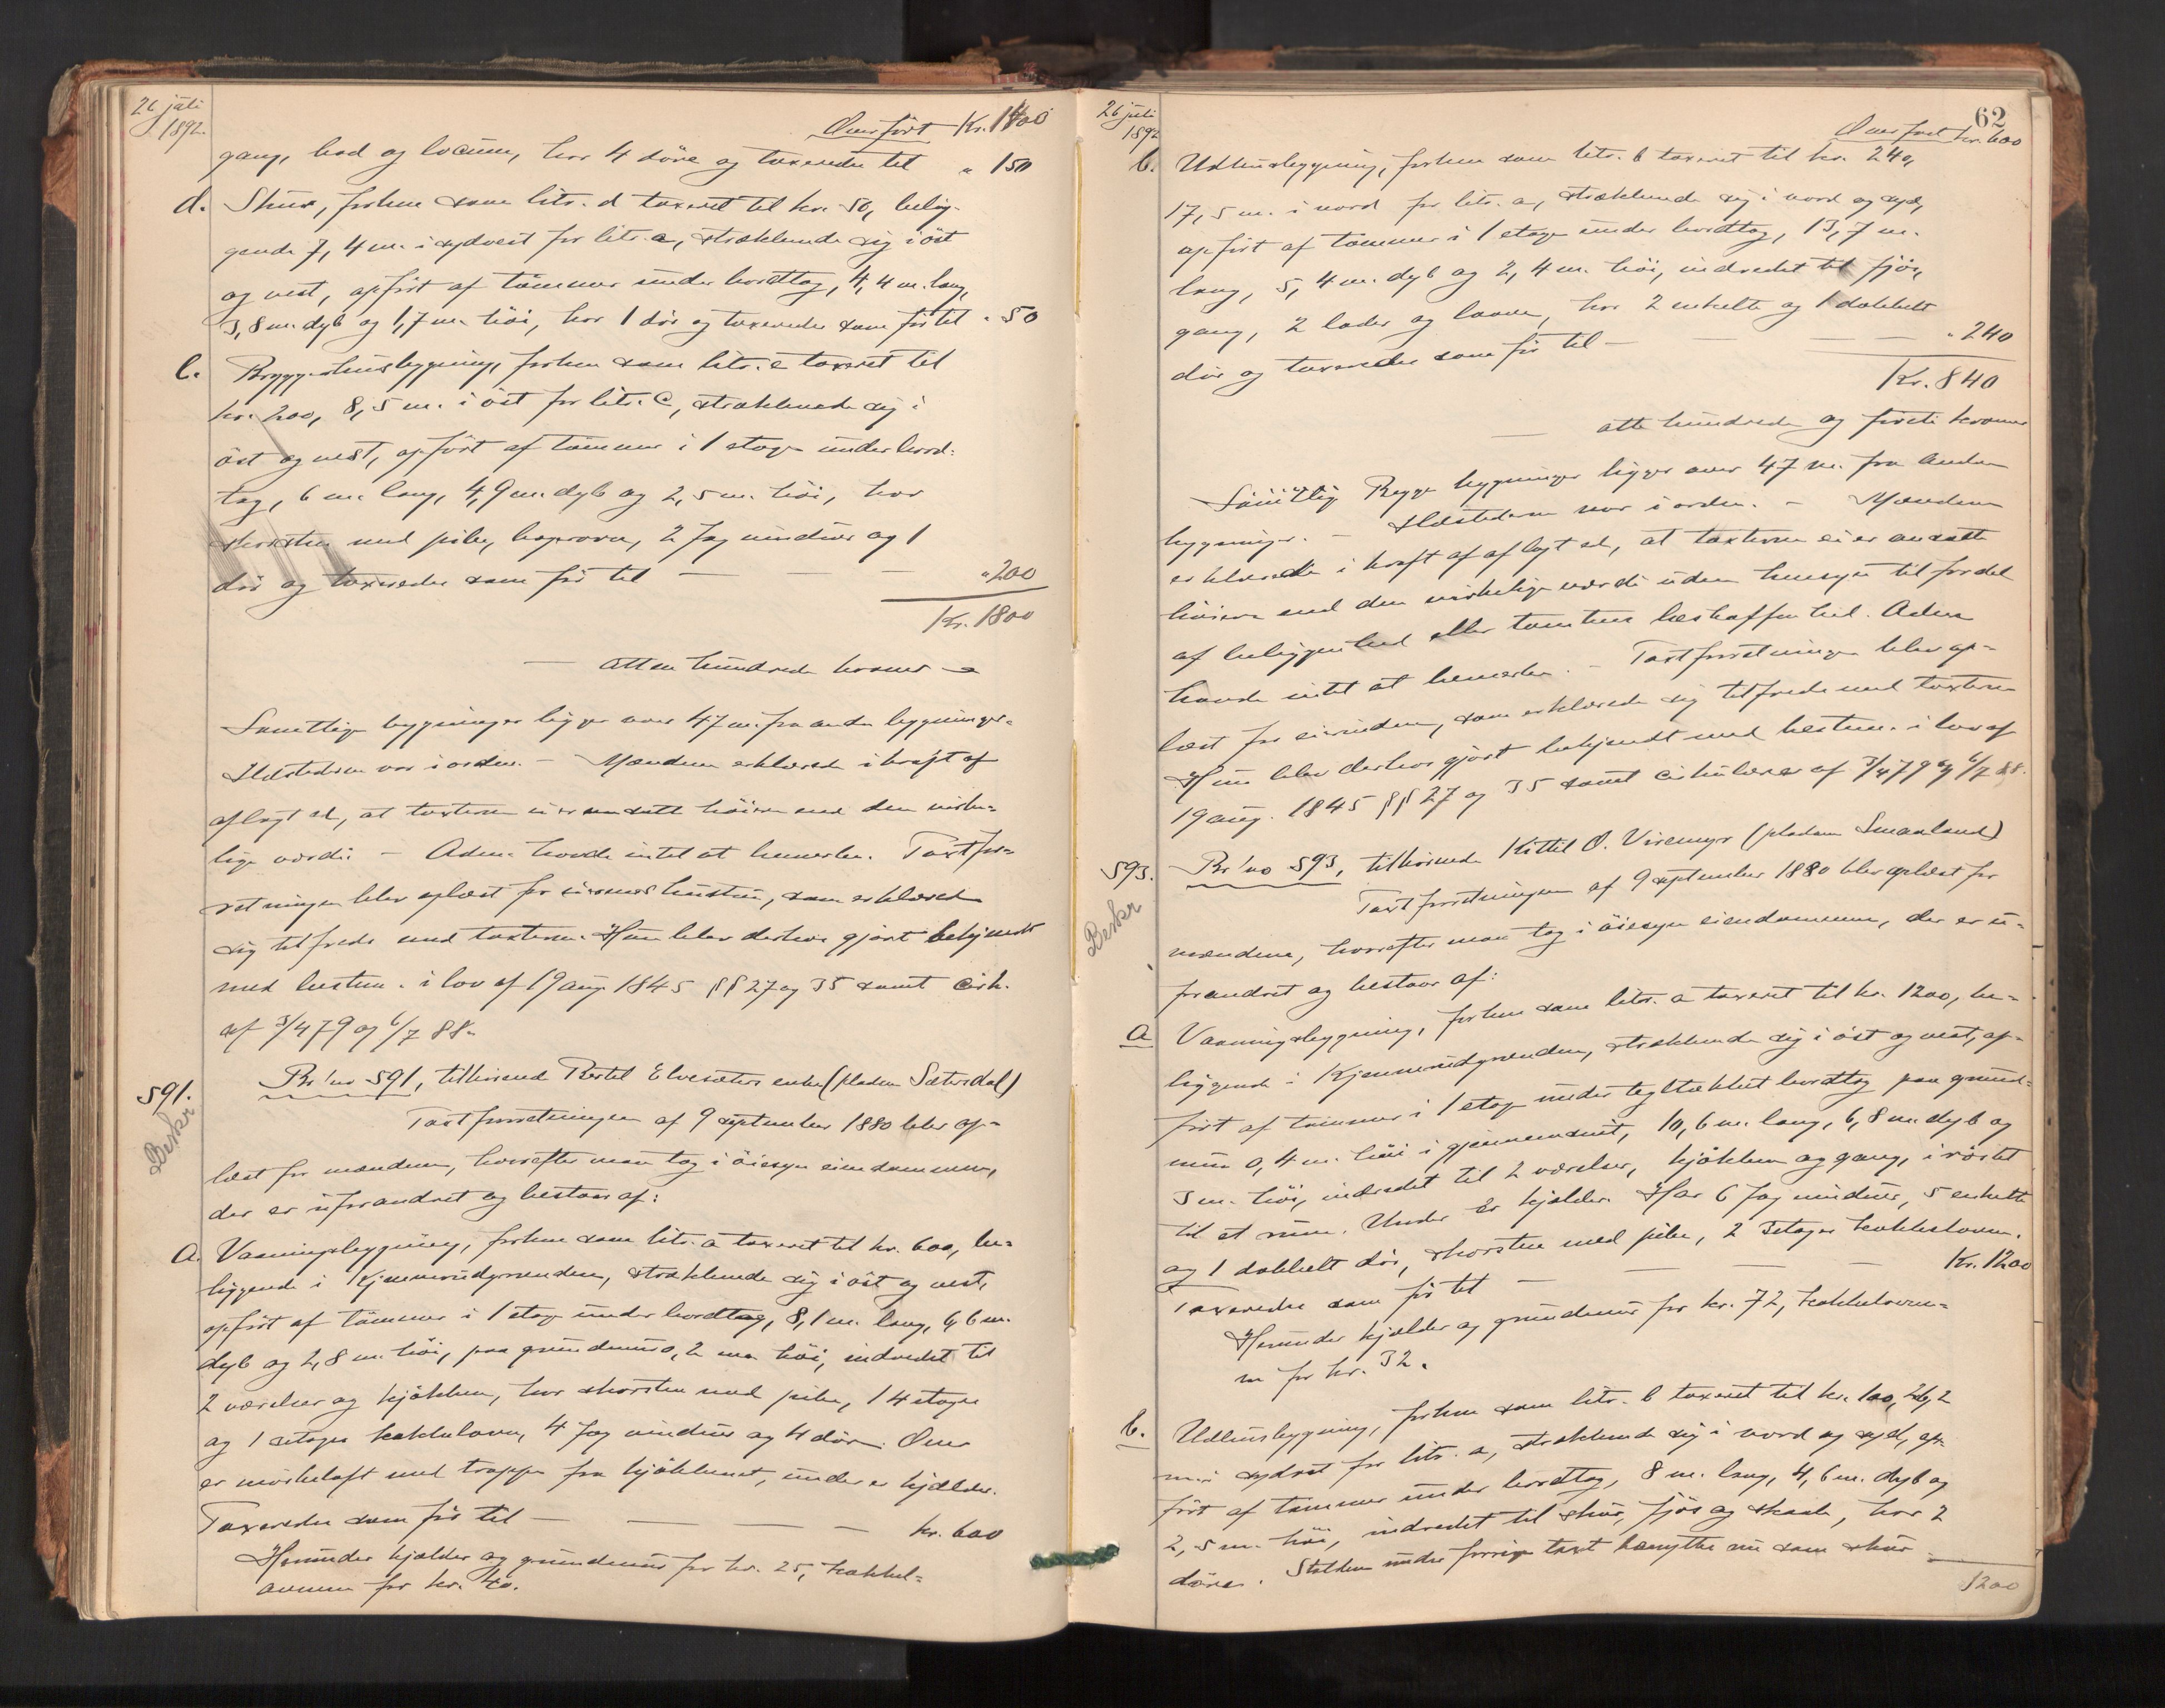 26 juli
1892.
Overført Kr. 1400
gang, bod og locum, har 4 döre og taxeredes til " 150
d. Skur, förhen som litr. d taxeret til kr. 50, belig-
gende 7,4 m. i sydvest for litr. a, strækkende sig i öst
og vest, opfört af tömmer under bordtag, 4,4 m. lang,
3,8 m. dyb og 1,7 m. höi, har 1 dör og taxeredes som för til " 50
e. Bryggerhusbygning, förhen som litr. e taxeret til
kr. 200, 8,5 m. i öst for litr. c, strækkende sig i
öst og vest, opfört af tömmer i 1 etage under bord-
tag, 6 m. lang, 4,9 m. dyb og 2,5 m. höi, har
skorsten med pibe, bagerovn, 2 fag vinduer og 1
dör og taxeredes som för til — — — " 200
Kr. 1800
— atten hundrede kroner —
Samtlige bygninger ligger over 47 m. fra andre bygninger.
Ildstederne var i orden. — Mændene erklærede i kraft af
aflagt ed, at taxterne ei er ansatte höiere end den virke-
lige værdi — Adm. havde intet at bemerke. Taxtfor-
retningen blev oplæst for eierens hustru, som erklæred
sig tilfreds med taxterne. Hun blev derhos gjort bekjendt
med bestem. i lov af 19 aug 1845 §§ 27 og 35 samt cirk.
af 3/4 79 og 6/7 88.
591.
Beskr
Br. no 591, tilhörende Bertel Elvesæters enke (pladsen Sætersdal)
Taxtforretningen af 9 september 1880 blev op-
læst for mændene, hvorefter man tog i öiesyn eiendommen,
der er uforandret og bestaar af:
a. Vaaningsbygning, förhen som litr. a taxeret til kr. 600, be-
liggende i Kjennerudgrænden, strækkende sig i öst og vest,
opfört af tömmer i 1 etage under bordtag, 8,1 m. lang, 6,6 m.
dyb og 2,8 m. höi, paa grundmur 0,2 m. höi, indredet til
2 værelser og kjökken, har skorsten med pibe, 1 4 etages
og 1 etages kakkelovn, 4 fag vinduer og 4 döre. Over
er mörkeloft med trappe fra kjökkenet, under er kjælder.
Taxeredes som för til — — — — kr. 600
Herunder kjælder og grundmur for kr. 25, kakkel-
ovnene for kr. 40.
62
26 juli
1892
Overført kr. 600
b. Udhusbygning, förhen som litr. b taxeret til kr. 240,
17,5 m. i nord for litr. a, strækkende sig i nord og syd,
opfört af tömmer i 1 etage under bordtag, 13,7 m.
lang, 5,4 m. dyb og 2,4 m. höi, indredet til fjös,
gang, 2 lader og laave, har 2 enkelte og 1 dobbelt
dör og taxeredes som för til — — — — " 240
Kr. 840
— otte hundrede og firti kroner
Samtlige Begge bygninger ligger over 47 m. fra andre
bygninger. — Ildstederne var i orden. — Mændene
erklærede i kraft af aflagt ed, at taxterne ei er ansatte
höiere end den virkelige værdi uden hensyn til fordel
af beliggenhed eller tomtens beskaffenhed. Adm.
havde intet at bemerke. — Taxtforretningen blev op-
læst for eierinden, som erklærede sig tilfreds med taxterne
Hun blev derhos gjort bekjendt med bestem. i lov af
19 aug. 1845 §§ 27 og 35 samt cirkulærer af 3/4 79 og 6/7 88.
593.
Beskr
Br. no 593, tilhörende Kittil O. Viremyr (pladsen Smaaland)
Taxtforretningen af 9 september 1880 blev oplæst for
mændene, hvorefter man tog i öiesyn eiendommen, der er u-
forandret og bestaar af:
a Vaaningsbygning, förhen som litr. a taxeret til kr. 1200, be-
liggende i Kjennerudgrænden, strækkende sig i öst og vest, op-
fört af tömmer i 1 etage under tegltækket bordtag paa grund-
mur 0,4 m. höi i gjennemsnit, 10,6 m. lang, 6,8 m. dyb og
3 m. höi, indredet til 2 værelser, kjökken og gang, i röstet
til et rum. Under er kjælder. Har 6 fag vinduer, 5 enkelte
og 1 dobbelt dör, skorsten med pibe, 2 3etages kakkelovne.
Taxeredes som för til — — — — Kr. 1200
Herunder kjælder og grundmur for kr. 72, kakkelovne-
ne for kr. 32.
b. Udhusbygning, förhen som litr. b taxeret til kr. 100, 26,2
m. i sydöst for litr. a, strækkende sig i nord og syd, op-
fört af tömmer under bordtag, 8 m. lang, 4,6 m. dyb og
2,5 m. höi, indredet til skur, fjös og skaale, har 2
döre. Stalden under forrige taxt benyttes nu som skur —
1200